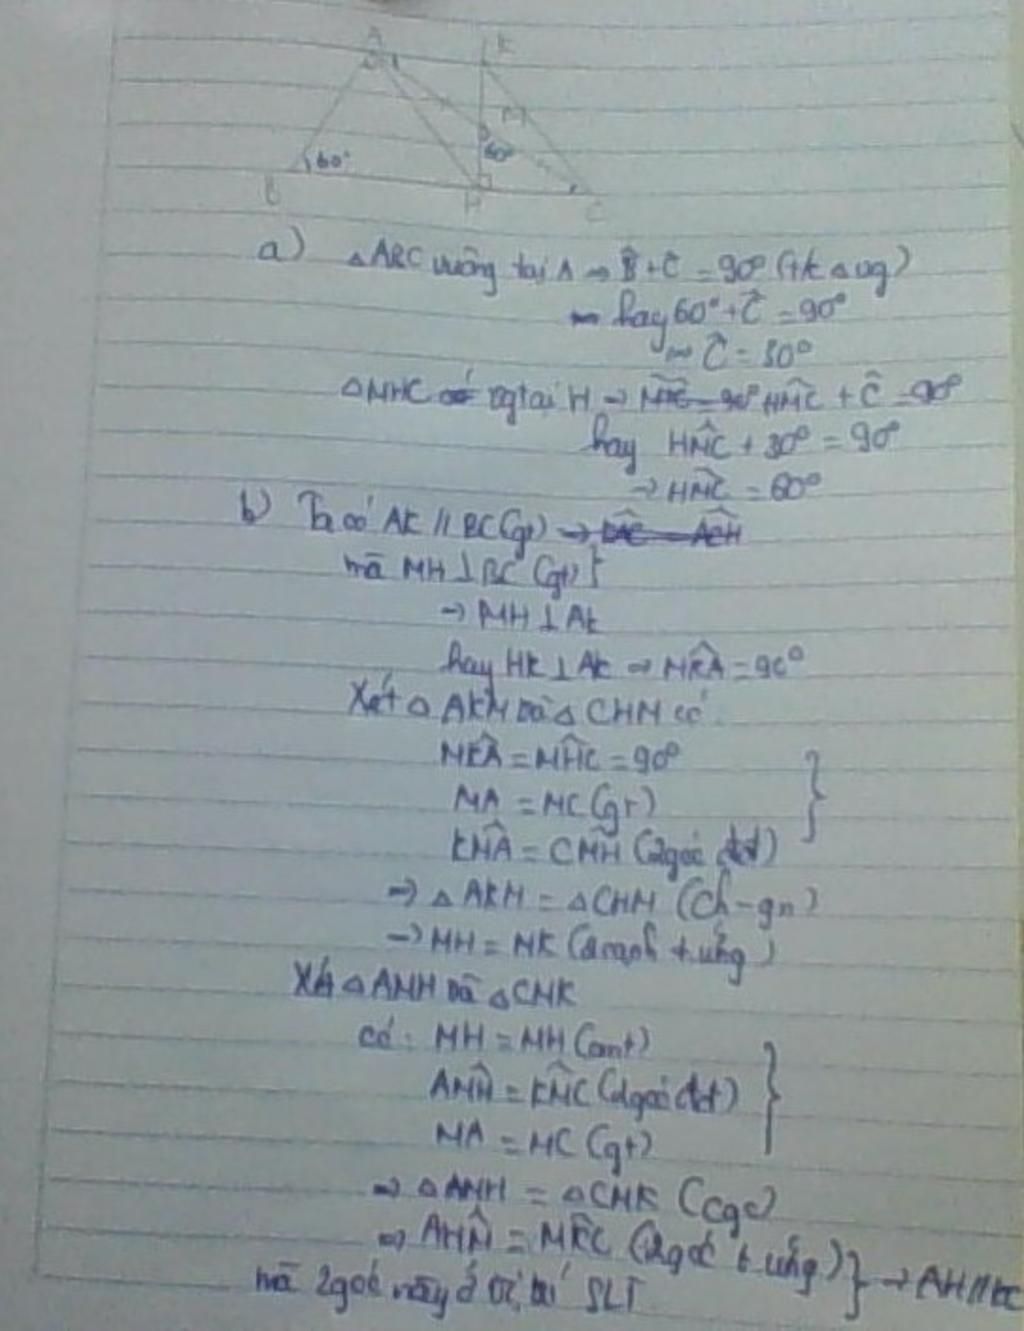 A K
M
60° 60°
B H C
a) △ABC vuông tại A ⇒ B̂ + Ĉ = 90° (t/c △ vg)
hay 60° + Ĉ = 90°
⇒ Ĉ = 30°
△MHC vg tại H → HM̂C + Ĉ = 90°
hay HM̂C + 30° = 90°
→ HM̂C = 60°
b) Ta có AK // BC (gt) →
mà MH ⊥ BC (gt) }
→ MH ⊥ AK
hay HK ⊥ AK ⇒ MK̂A = 90°
Xét △ AKM và △ CHM có
MK̂A = MĤC = 90°
MA = MC (gt) }
KM̂A = CM̂H (2 góc đđ)
⇒ △ AKM = △CHM (ch-gn)
→ MH = MK (2 cạnh t.ứng)
Xét △ AMH và △CMK
có: MH = MH (cmt)
AM̂H = KM̂C (2 góc đđ) }
MA = MC (gt)
⇒ △ AMH = △CMK (cgc)
⇒ AĤM = MK̂C (2 góc t.ứng) } → AH // KC
mà 2 góc này ở vị trí SLT